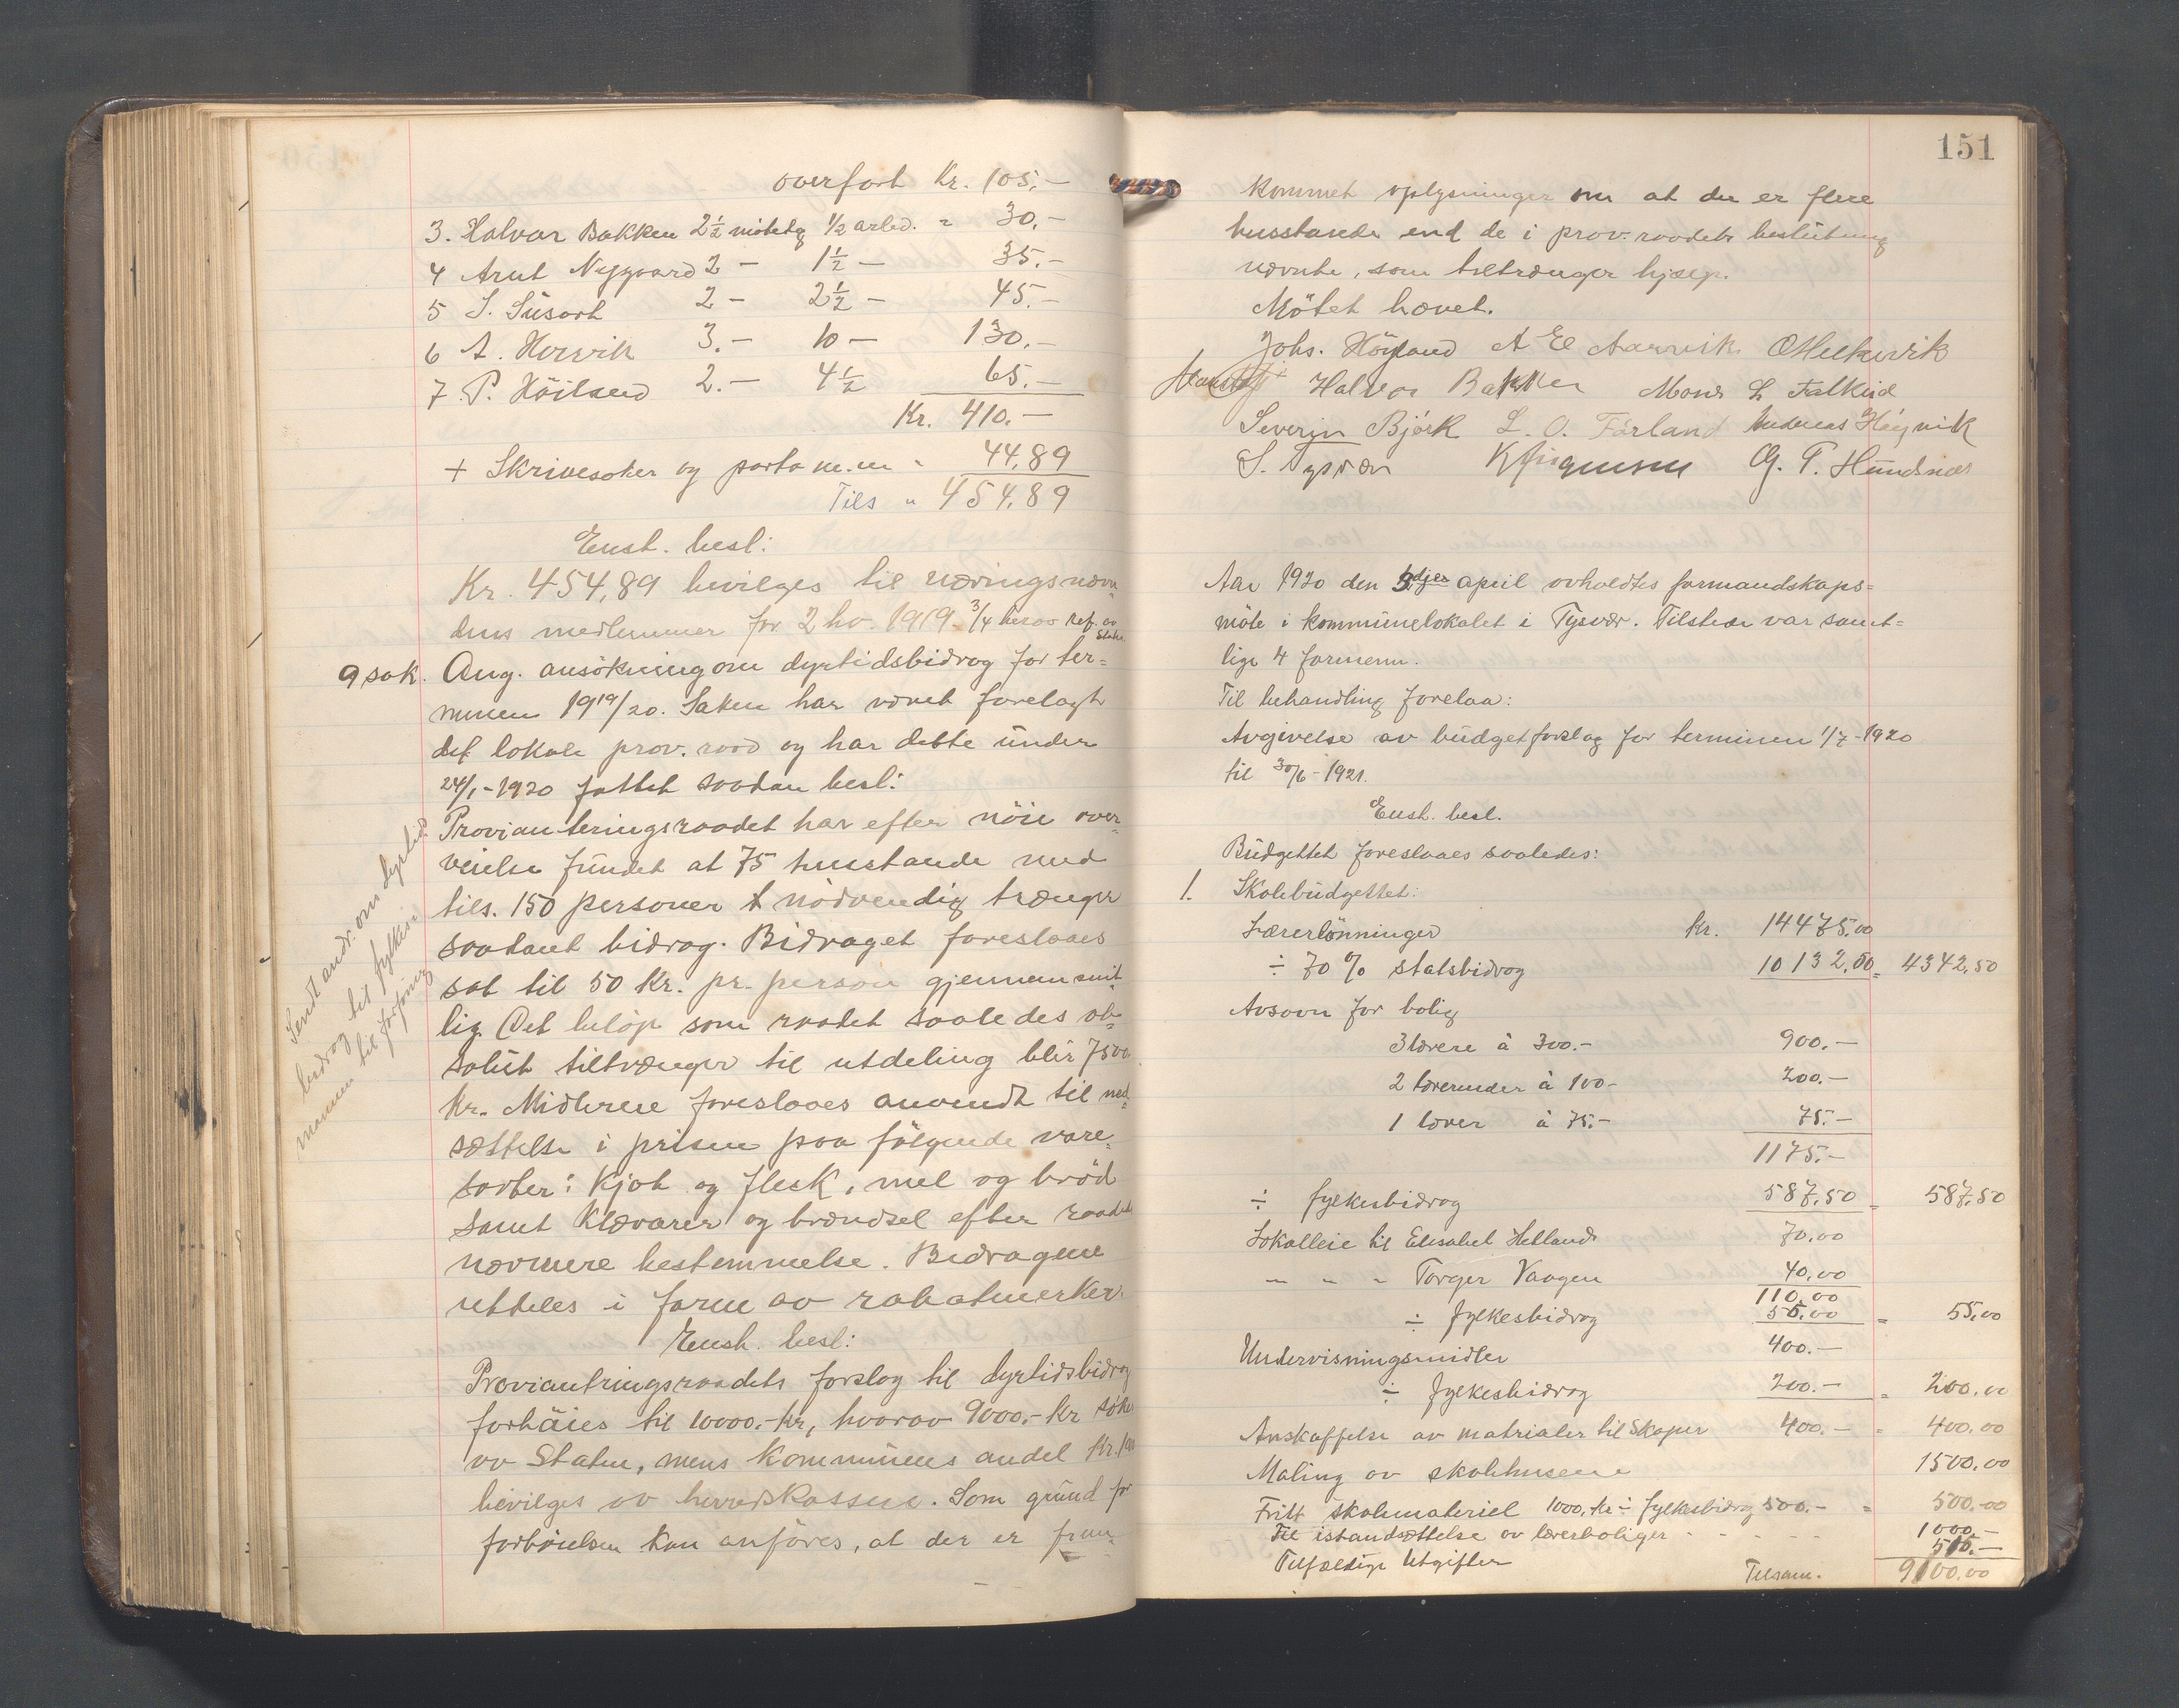 overført Kr. 105,-
3. Halvar Bakken 2½ mötedg ½ arbed. " 30,-
4 Arnt Nygaard 2 - 1½ - 35.-
5 S. 2 - 2½ - 45.-
6 A. 3.- 10 - 130.-
7. P. 2.- 4½ 65.-
Kr. 410.-
+ Skrivesaker og porto m.m " 44,89
Tils " 454,89
Enst. besl:
Kr. 454,89 bevilges til næringsnævn
dens medlemmer for 2 hv. 1919. 3/4 herav ref. av
Staten
9 sak. Ang. ansökning om dyrtidsbidrag for ter=
minen 1919/20. Saken har været forelagt
det lokale prov. raad og har dette under
24/1-1920 fattet saadan besl:
Provianteringsraadet har efter nöie over=
veielse fundet at 75 husstande med
tils. 150 personer nödvendig trænger
saadant bidrag. Bidraget foreslaaes
sat til 50 Kr. pr. person gjennemsnit=
lig. Det belöp som raadet saaledes ab=
solut tiltrænger til utdeling blir 7500
Kr. Midlerne foreslaaes anvendt til ned=
sættelse i prisen paa fölgende vare=
sorter: Kjöt og flesk, mel og bröd
samt Klævarer og brændsel efter raadets
nærmere bestemmelse. Bidragene
utdeles i form av rabatmerker.
Enst. besl:
Provianteringsraadets forslag til dyrtidsbidrag
forhöies til 10000.- kr, hvorav 9000.- kr sökes
av Staten, mens Kommunens andel Kr. 1000
bevilges av herredskassen. Som grund for
forhöielsen kan anföres, at der er frem=
Sendt andr. om dyrtids
bidrag til fylkes
mannen til
151
kommet oplysninger om at der er flere
husstande end de i prov. raadets beslutning
nævnte, som tiltrænger hjælp.
Mötet hævet.
Johs. Höyland A E Aarvik O Helkvik
Halvor Bakken Mons L Falkeid
Severin Björk L. O. Førland Andreas
S. Tysvær G. T. Hundsnes
Aar 1920 den 3djer april avholdtes formandskaps=
möte i kommunelokalet i Tysvær. Tilstede var samt=
lige 4 formenn.
Til behandling forelaa:
Avgivelse av budgetforslag for terminen 1/7-1920
til 30/6-1921.
Enst. besl.
Budgettet foreslaaes saaledes:
1. Skolebudgettet:
Lærerlönninger Kr. 14475,00
÷ 70 % statsbidrag 10132,50 = 4342,50
Avsavn for bolig
3 lærere à 300.- 900.-
2 lærerinder à 100- 200.-
1 lærer à 75.- 75.-
1175.-
÷ fylkesbidrag 587,50 = 587,50
Lokalleie til Elisabet Helland 70,00
- " - Torger Vaagen 40,00
110,00
÷ fylkesbidrag 55,00 = 55,00
Undervisningsmidler 400.-
÷ fylkesbidrag 200.- = 200,00
Anskaffelse av matrialer til Skaper 400.- = 400,00
Maling av skolehusene 1500,00
Fritt skolemateriel 1000,kr ÷ fylkesbidrag 500.- = 500,00
Til istandsættelse av lærerboliger - - - - - 1000.-
Tilfældige Utgifter
Tilsam.